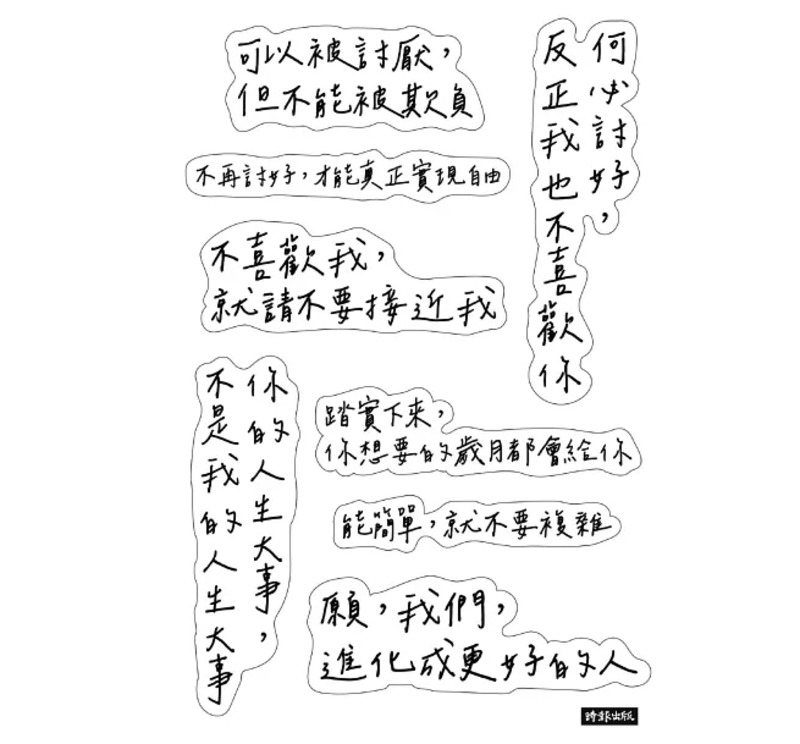 可以被討厭，
但不能被欺負
不再討好，才能真正實現自由
不喜歡我，
就請不要接近我
何必討好，
反正我也不喜歡你
你的人生大事，
不是我的人生大事
踏實下來，
你想要的歲月都會給你
能簡單，就不要複雜
願，我們，
進化成更好的人
時報出版